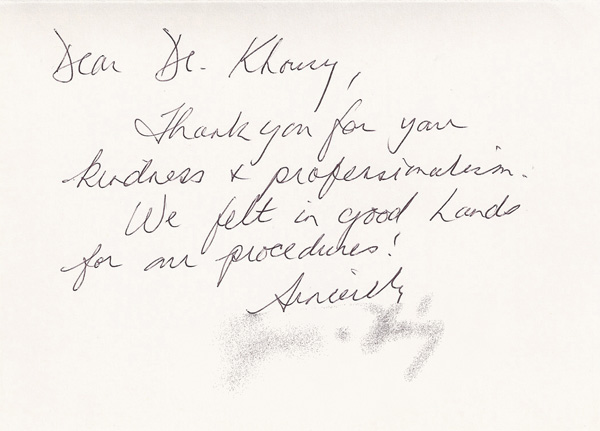 Dear Dr. Khoury,
Thank you for your
kindness & professionalism.
We felt in good hands
for our procedures!
Sincerely